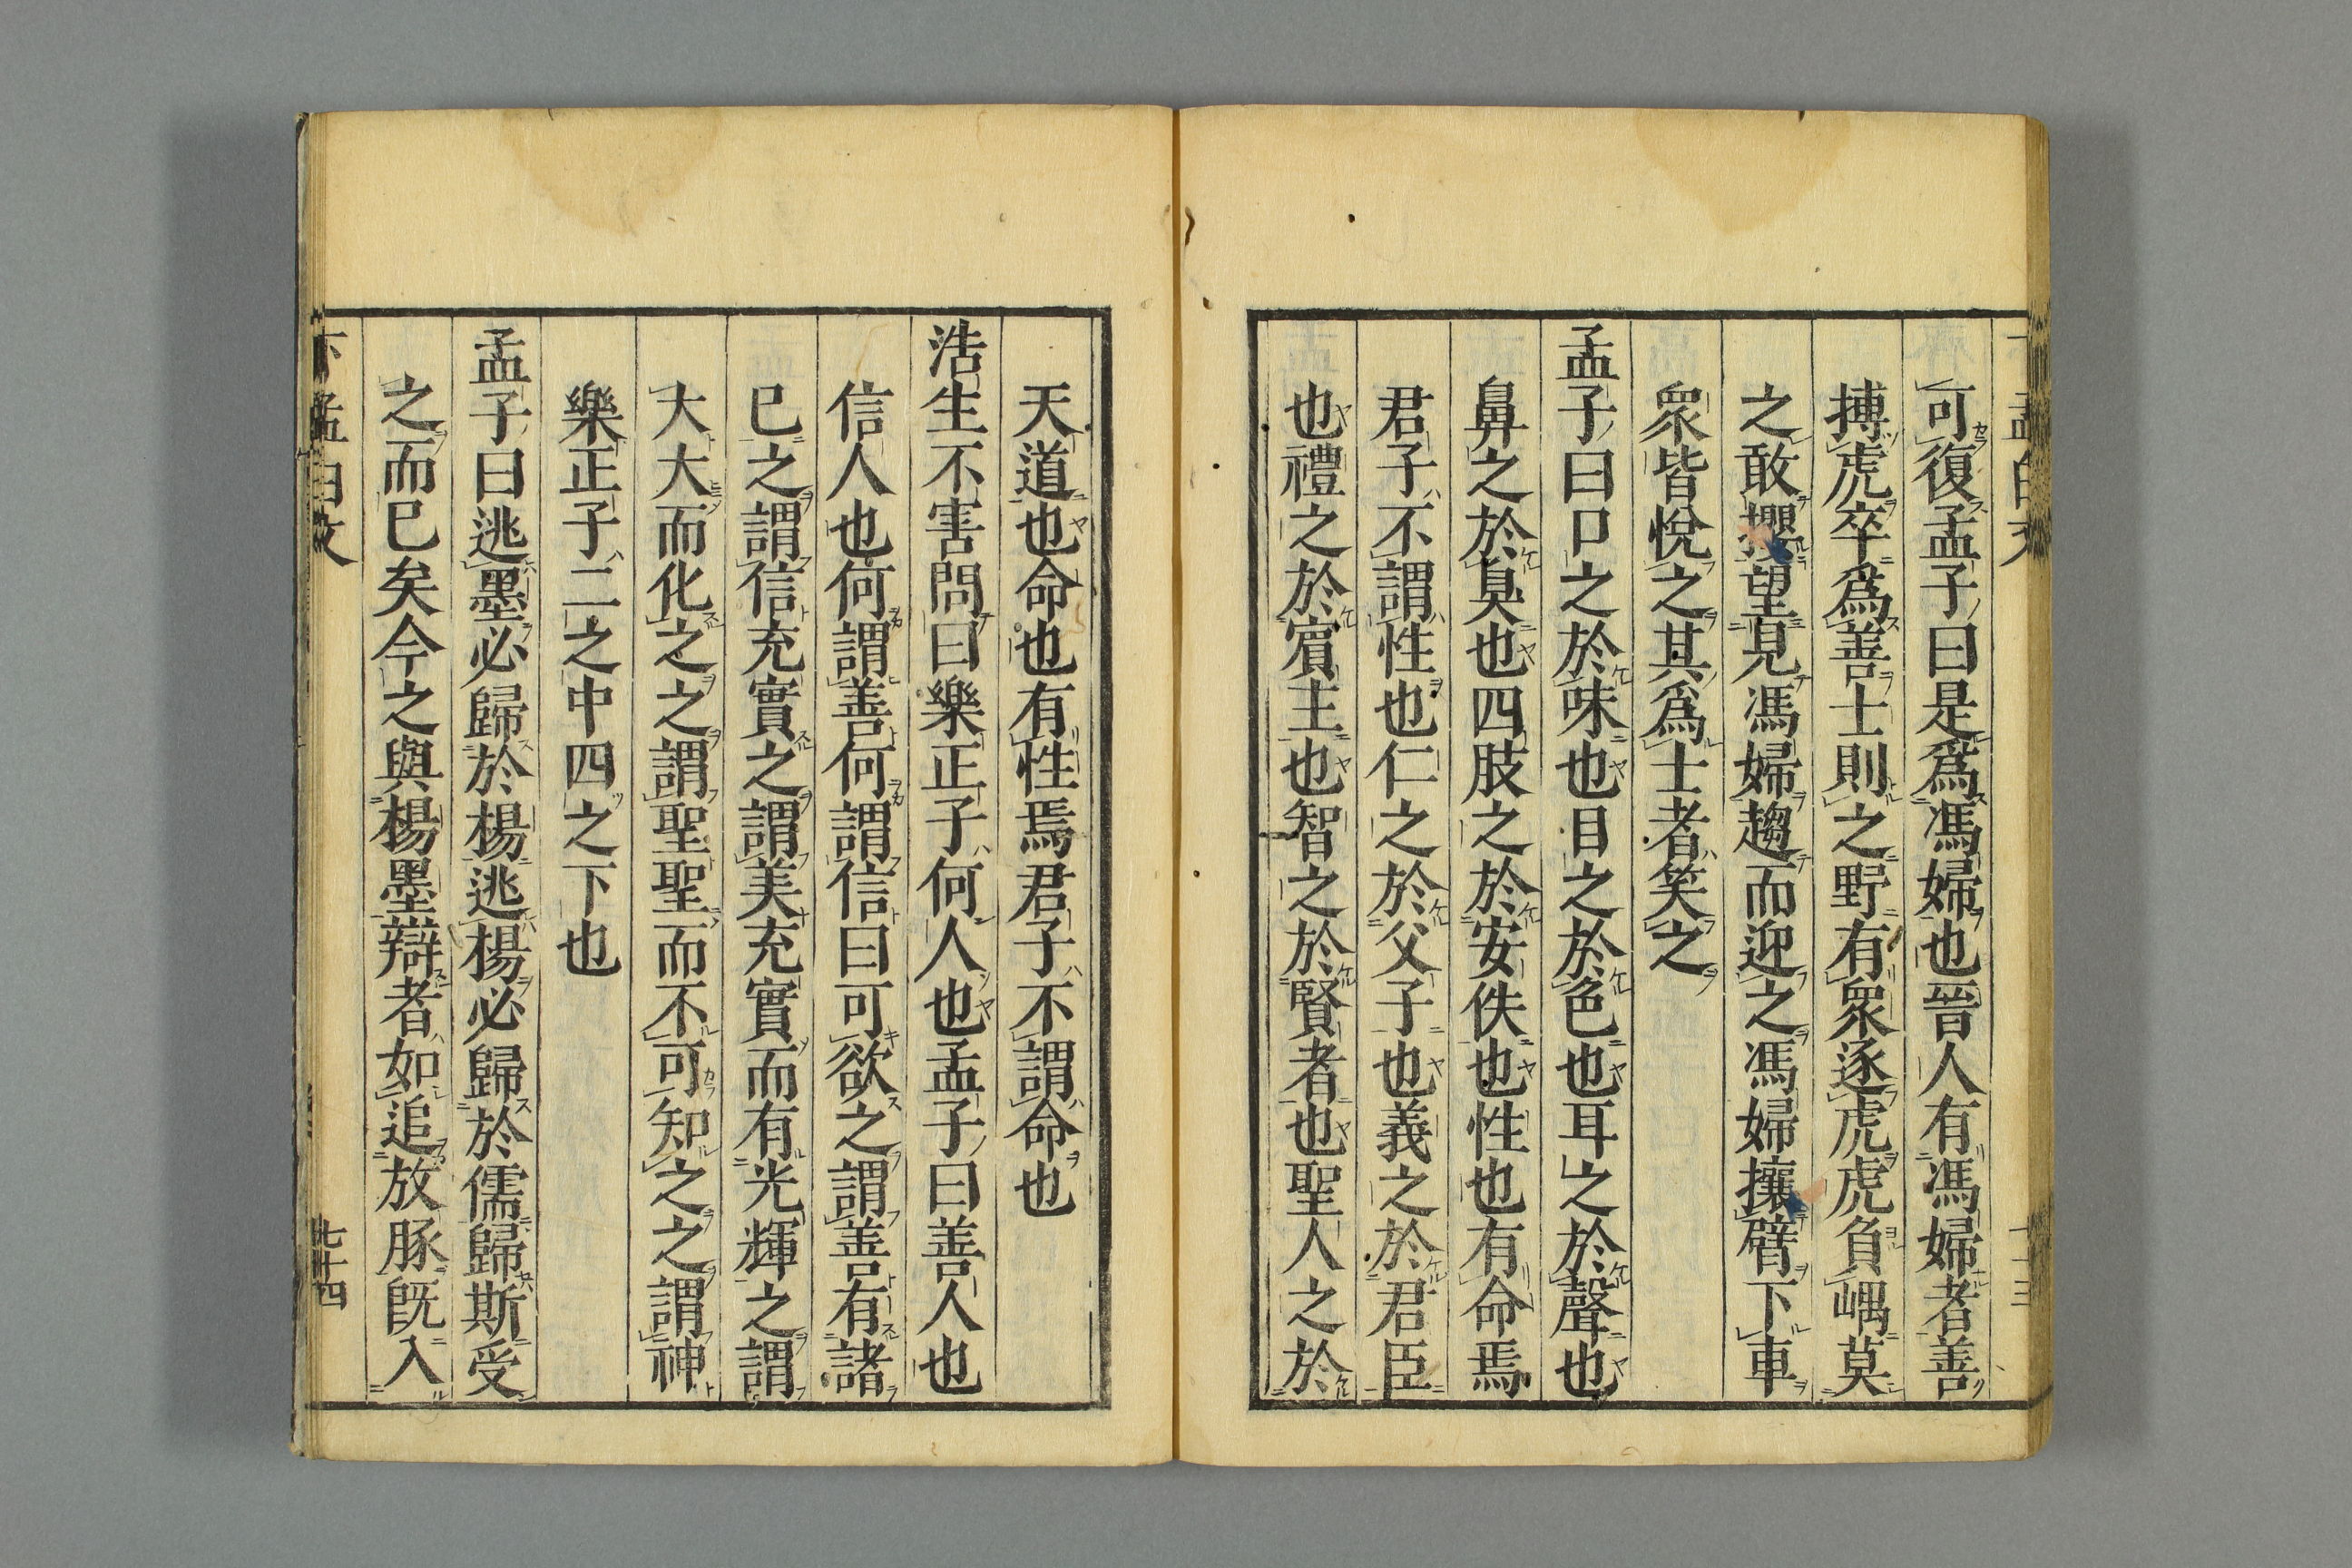 可復孟子曰是爲馮婦也晉人有馮婦者善
搏虎卒爲善士則之野有衆逐虎虎負嵎莫
之敢攖望見馮婦趨而迎之馮婦攘臂下車
衆皆悅之其爲士者笑之
孟子曰口之於味也目之於色也耳之於聲也
鼻之於臭也四肢之於安佚也性也有命焉
君子不謂性也仁之於父子也義之於君臣
也禮之於賓主也智之於賢者也聖人之於
天道也命也有性焉君子不謂命也
浩生不害問曰樂正子何人也孟子曰善人也
信人也何謂善何謂信曰可欲之謂善有諸
已之謂信充實之謂美充實而有光輝之謂
大大而化之之謂聖聖而不可知之之謂神
樂正子二之中四之下也
孟子曰逃墨必歸於楊逃楊必歸於儒歸斯受
之而已矣今之與楊墨辯者如追放豚既入
下孟白文
七十四